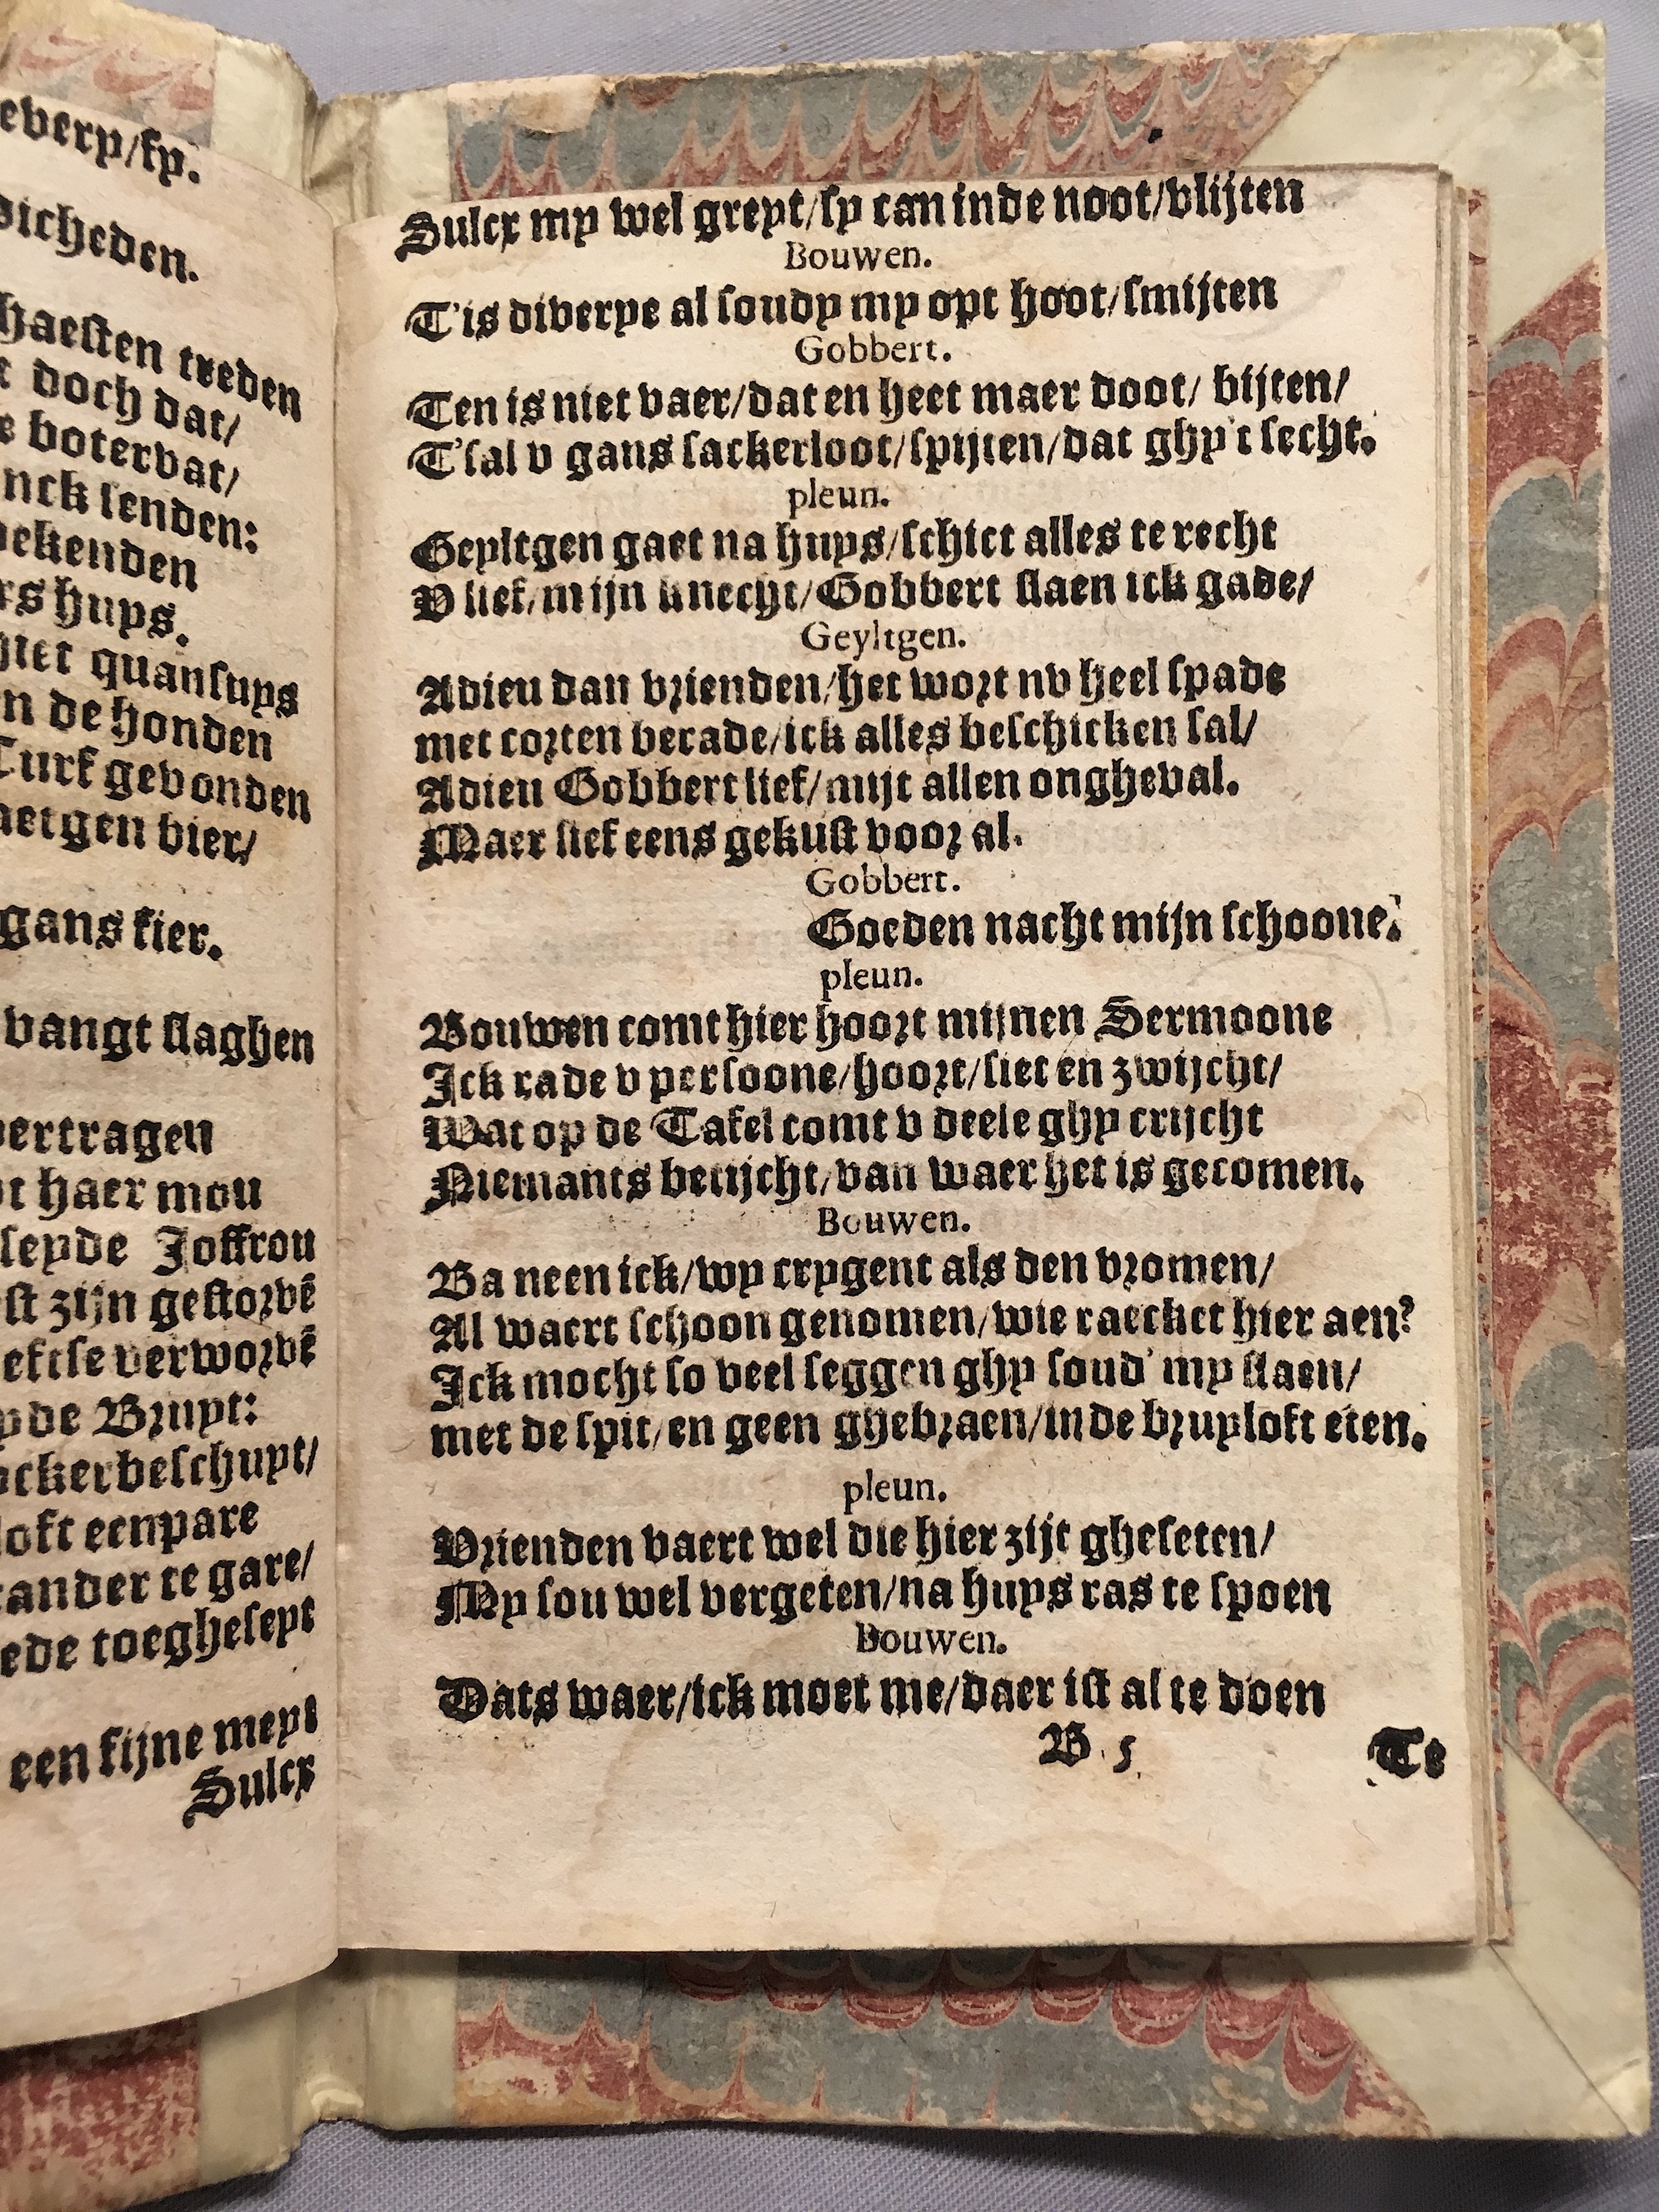 everp/sy.
dicheden.
haesten treden
t doch dat/
e botervat/
nck senden:
bekenden
rs huys.
niet quansuys
n de honden
Turf gevonden
aetgen bier/
gans fier.
vangt slaghen
vertragen
ot haer mou
seyde Joffrou
st zijn gestorvē
eftse verworvē
p de Bruyt:
ackerbeschuyt/
loft eenpare
ander te gare/
ede toegheseyt
een fijne meyt
Sulcx
Sulcx my wel greyt/sy can inde noot/vlijten
Bouwen.
T'is diverye al soudy my opt hoot/smijten
Gobbert.
Ten is niet vaer/dat en heet maer doot/ bijten/
T'sal v gans sackerloot/spijten/dat ghy't secht.
pleun.
Geyltgen gaet na huys/schict alles te recht
V lief/mijn knecht/Gobbert slaen ick gade/
Geyltgen.
Adieu dan vrienden/het wort nv heel spade
met corten berade/ick alles beschicken sal/
Adieu Gobbert lief/mijt allen ongheval.
Maer lief eens gekust voor al.
Gobbert.
Goeden nacht mijn schoone.
pleun.
Bouwen comt hier hoort mijnen Sermoone
Ick rade v persoone/hoort/siet en zwijcht/
Wat op de Tafel comt v deele ghy crijcht
Niemants betijcht/van waer het is gecomen.
Bouwen.
Ba neen ick/wy crygent als den vromen/
Al waert schoon genomen/wie raecket hier aen?
Ick mocht so veel seggen ghy soud' my slaen/
met de spit/en geen ghebraen/in de bruyloft eten.
pleun.
Vrienden vaert wel die hier zijt gheseten/
My sou wel vergeten/na huys ras te spoen
Bouwen.
Dats waer/ick moet me/daer ist al te doen
B 5 Te